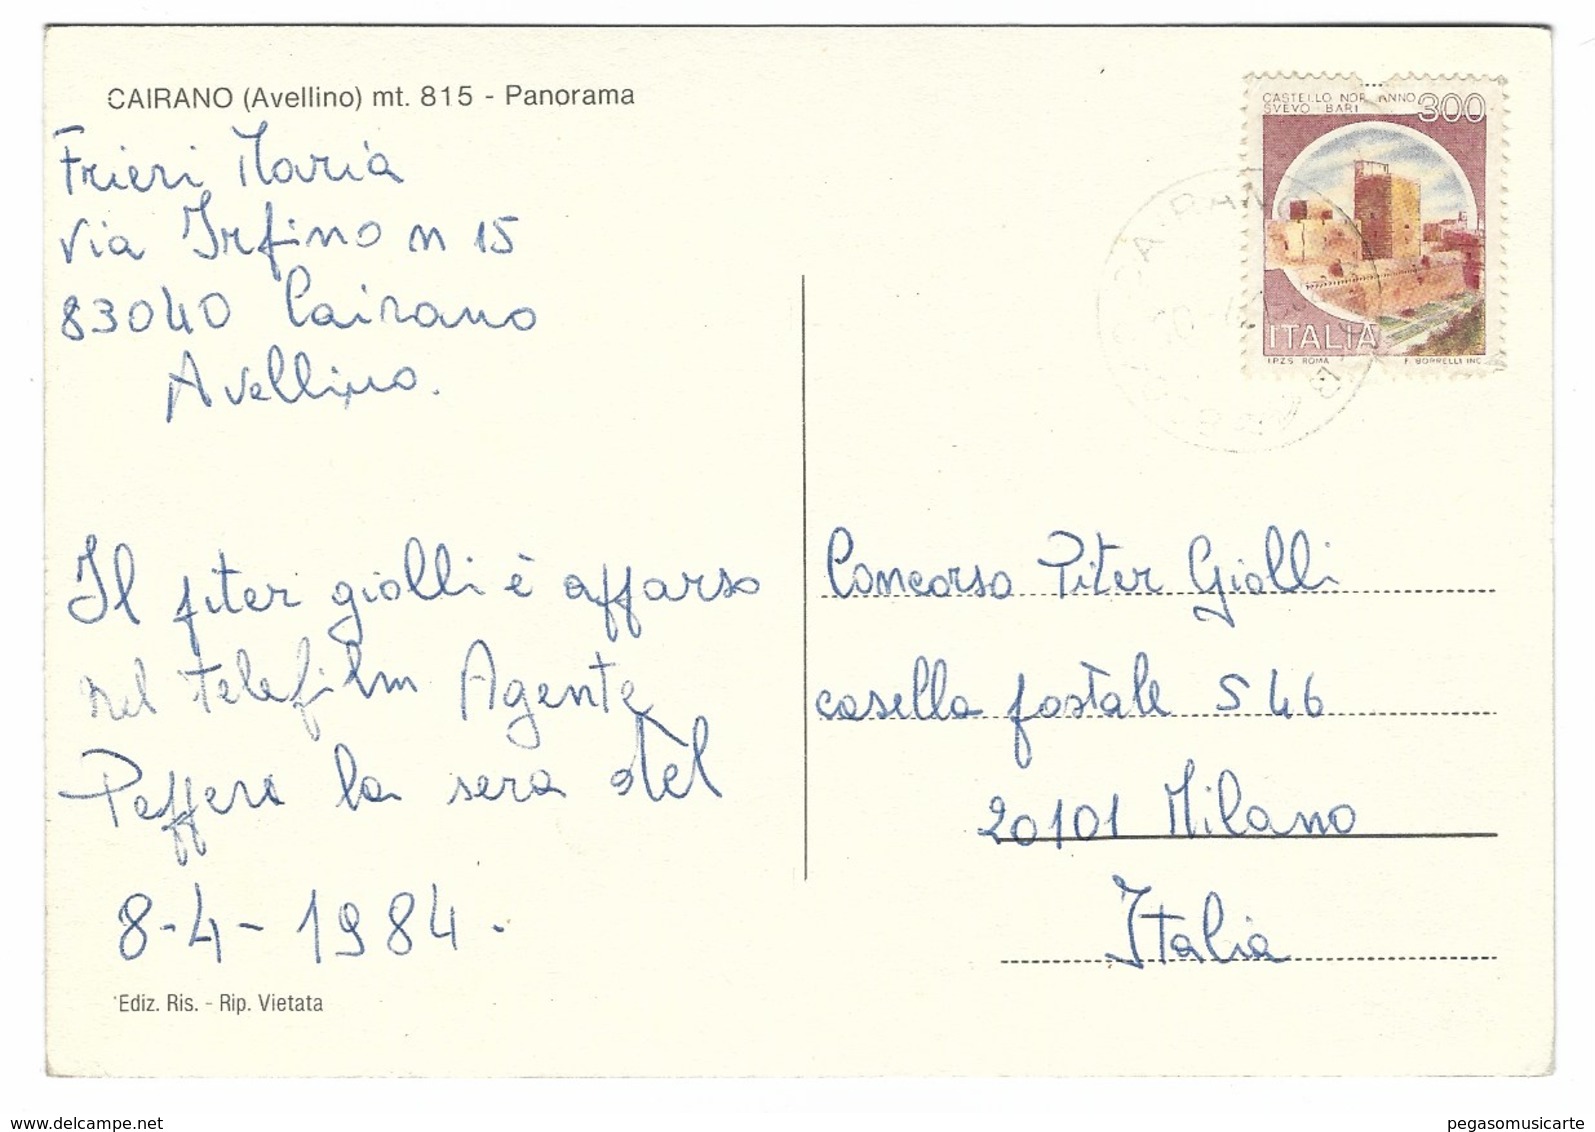 CAIRANO (Avellino) mt. 815 - Panorama
Frieri Maria
Via Irpino n 15
83040 Cairano
Avellino.
Il piter giolli è apparso
nel telefilm Agente
Peppere la sera del
8-4-1984.
Ediz. Ris. - Rip. Vietata
CASTELLO NORMANNO
SVEVO BARI
300
ITALIA
I.P.Z.S. ROMA F. BORRELLI INC.
CAIRANO
Concorso Piter Giolli
casella postale 546
20101 Milano
Italia
delcampe.net
pegasomusicarte